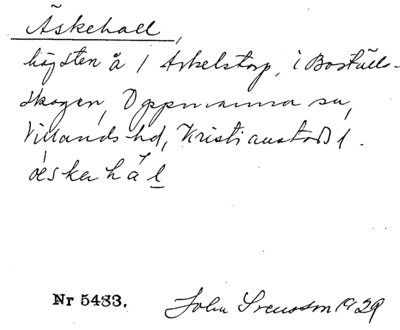 Äskehall,
högsten å 1 Arkelstorp, i Boställs-
skogen, Oppmanna sn,
Villands hd, Kristianstads l.
äskerhål
Nr 5483. John Svensson 1929